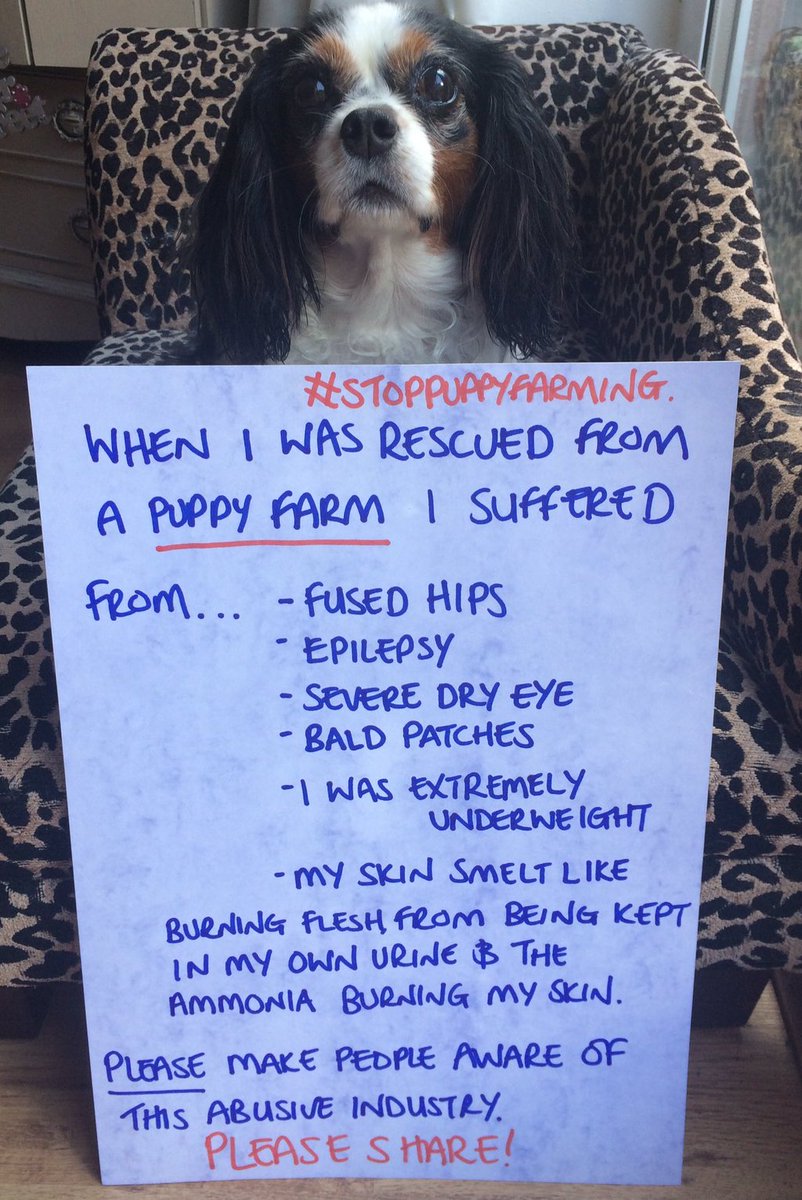 #STOPPUPPYFARMING.
WHEN I WAS RESCUED FROM
A PUPPY FARM I SUFFERED
FROM... - FUSED HIPS
- EPILEPSY
- SEVERE DRY EYE
- BALD PATCHES
- I WAS EXTREMELY
UNDERWEIGHT
- MY SKIN SMELT LIKE
BURNING FLESH, FROM BEING KEPT
IN MY OWN URINE & THE
AMMONIA BURNING MY SKIN.
PLEASE MAKE PEOPLE AWARE OF
THIS ABUSIVE INDUSTRY.
PLEASE SHARE!